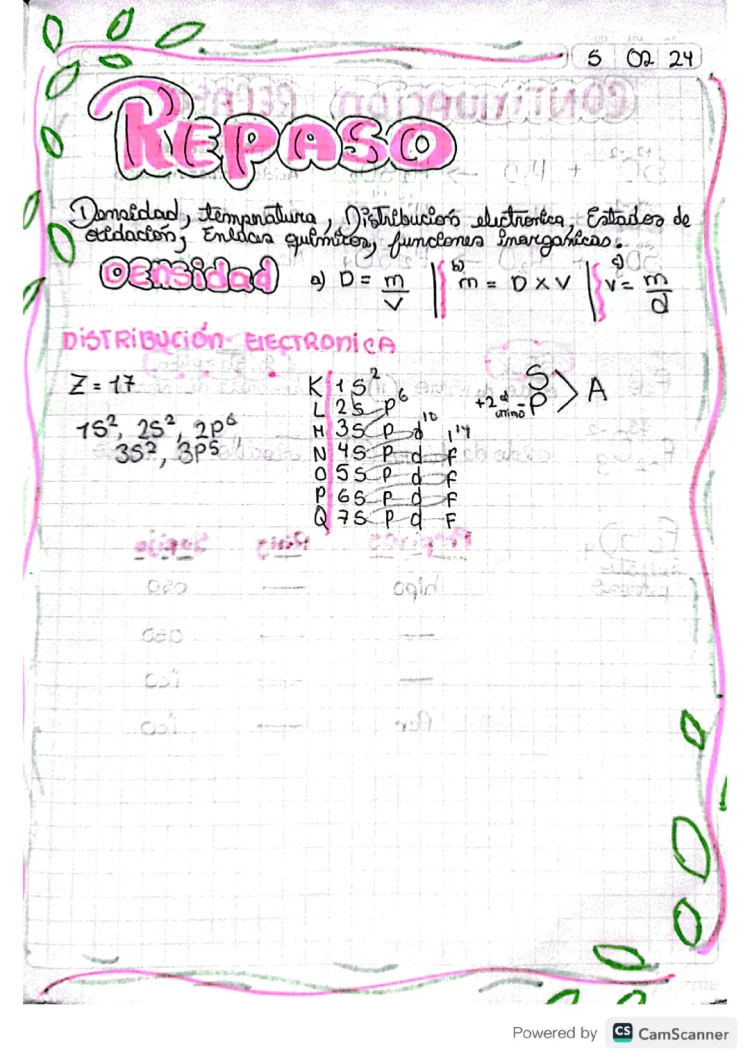 5 02 24
REPASO
Densidad, temperatura, Distribución electronica, Estados de
oxidación, Enlaces químicos, funciones inorganicas.
DENSIDAD a) D = m/V b) m = D x V c) V = m/d
DISTRIBUCIÓN ELECTRONICA
Z = 17
1S², 2S², 2P⁶
3S², 3P⁵,
K 1S²
L 2S P⁶
M 3S P d¹⁰
N 4S P d F
O 5S P d F
P 6S P d F
Q 7S P d F
S
P > A
Powered by CS CamScanner